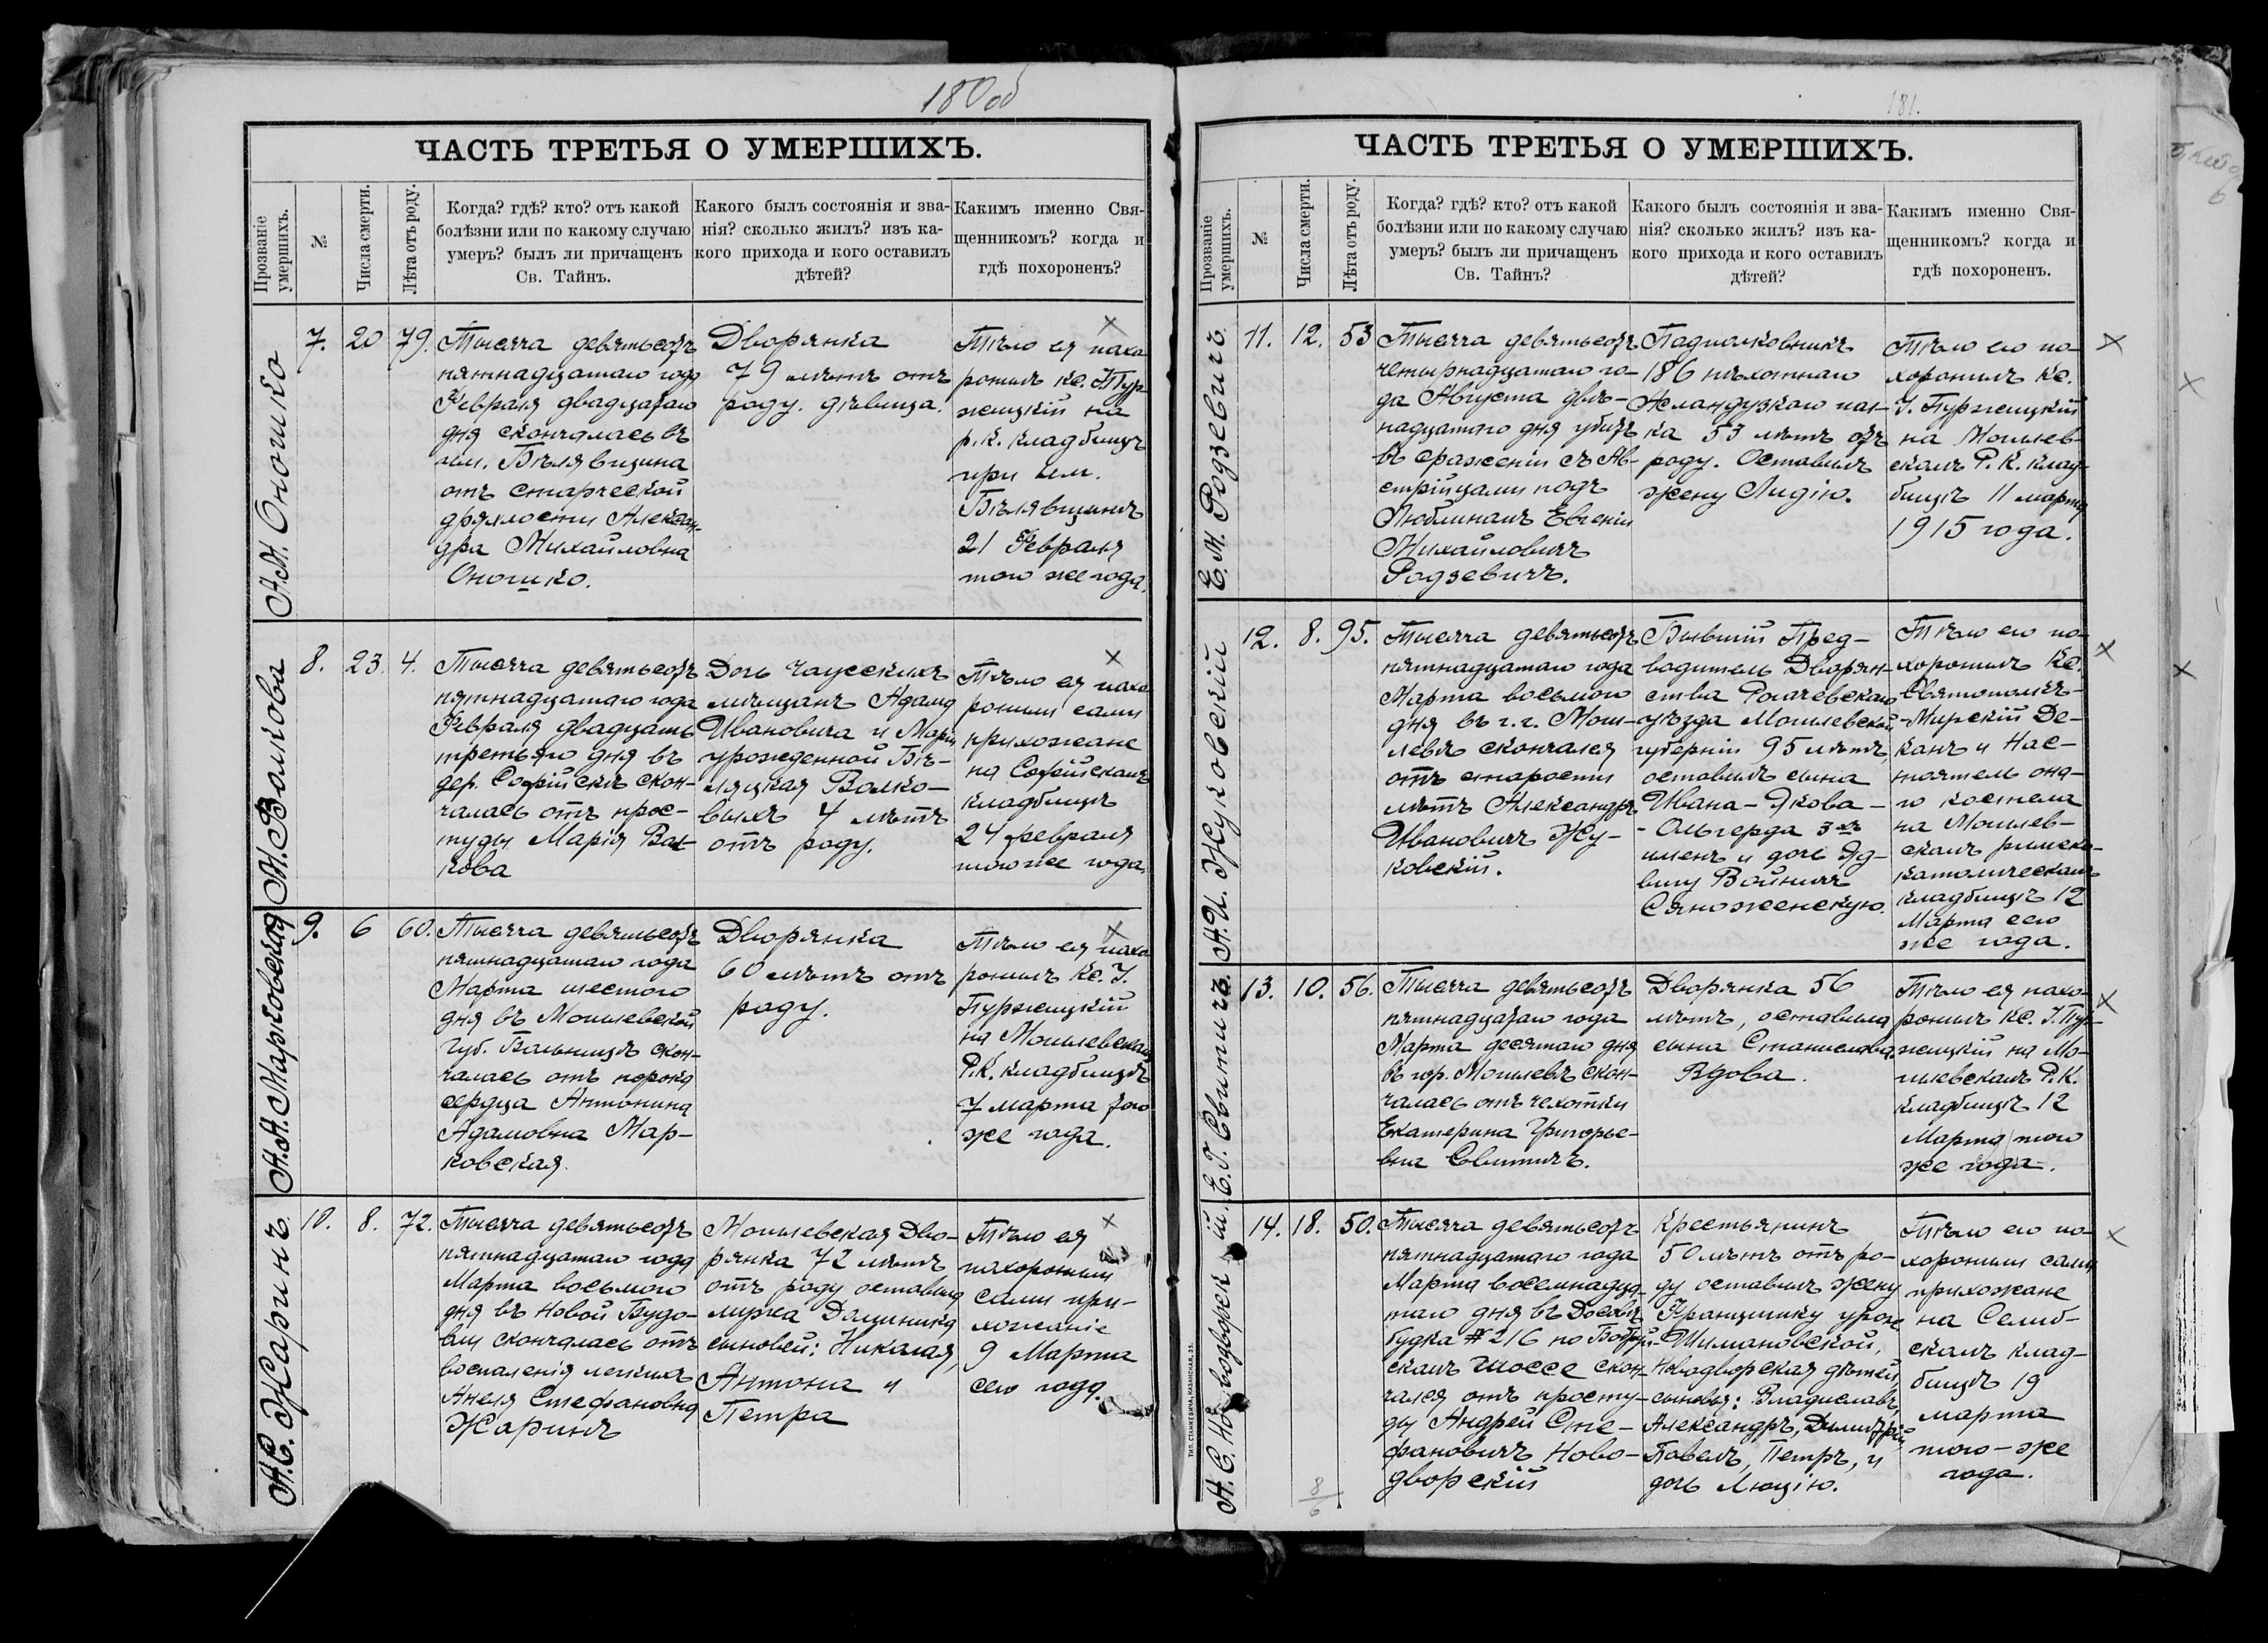 180 об
ЧАСТЬ ТРЕТЬЯ О УМЕРШИХЪ.
Прозваніе
умершихъ.
№
Числа смерти.
Лѣта отъ роду.
Когда? гдѣ? кто? отъ какой
болѣзни или по какому случаю
умеръ? былъ ли причащенъ
Св. Тайнъ.
Какого былъ состоянія и зва-
нія? сколько жилъ? изъ ка-
кого прихода и кого оставилъ
дѣтей?
Какимъ именно Свя-
щенникомъ? когда и
гдѣ похороненъ?
А.М. Оношко
7.
20
79.
Тысяча девятьсотъ
пятнадцатаго года
Февраля двадцатаго
дня скончалась въ
им. Бѣлявщина
отъ старческой
дряхлости Алексан-
дра Михайловна
Оношко.
Дворянка
79 лѣтъ отъ
роду. дѣвица.
Тѣло ея похо-
ронилъ кс. Пур-
жицкій на
р. к. кладбищѣ
при им.
Бѣлявщинѣ
21 Февраля
того же года.
М. Волкова
8.
23.
4.
Тысяча девятьсотъ
пятнадцатаго года
Февраля двадцать
третьяго дня въ
дер. Софійскъ скон-
чалась отъ прос-
туды Марія Вол-
кова
Дочь чаусскихъ
мѣщанъ Адама
Ивановича и Маріи
урожденной Бѣ-
ляцкая Волко-
выхъ 4 лѣтъ
отъ роду.
Тѣло ея похо-
ронили сами
прихожане
на Софійскомъ
кладбищѣ
24 февраля
того же года.
А.А. Марковская
9.
6
60.
Тысяча девятьсотъ
пятнадцатаго года
Марта шестого
дня въ Могилевской
губ. Больницѣ скон-
чалась отъ порока
сердца Антонина
Адамовна Мар-
ковская.
Дворянка
60 лѣтъ отъ
роду.
Тѣло ея похо-
ронилъ кс. І.
Пуржицкій
на Могилевскомъ
Р.К. кладбищѣ
7 марта того
же года.
А.С. Жаринъ
10.
8.
72.
Тысяча девятьсотъ
пятнадцатаго года
Марта восьмого
дня въ Новой Будо-
вли скончалась отъ
воспаленія легкихъ
Анеля Стефановна
Жаринъ
Могилевская Дво-
рянка 72 лѣтъ
отъ роду оставила
мужа Доминика
сыновей: Николая,
Антона и
Петра
Тѣло ея
похоронили
сами при-
хожаніе
9 Марта
сего года.
181.
ЧАСТЬ ТРЕТЬЯ О УМЕРШИХЪ.
Прозваніе
умершихъ.
№
Числа смерти.
Лѣта отъ роду.
Когда? гдѣ? кто? отъ какой
болѣзни или по какому случаю
умеръ? былъ ли причащенъ
Св. Тайнъ?
Какого былъ состоянія и зва-
нія? сколько жилъ? изъ ка-
кого прихода и кого оставилъ
дѣтей?
Какимъ именно Свя-
щенникомъ? когда и
гдѣ похороненъ.
Е.М. Родзевичъ.
11.
12.
53
Тысяча девятьсотъ
четырнадцатаго го-
да Августа двѣ-
надцатаго дня убитъ
въ сраженіи съ Ав-
стрійцами подъ
Люблиномъ Евгеній
Михайловичъ
Родзевичъ.
Подполковникъ
186 пѣхотнаго
Асландузкого пол-
ка 53 лѣтъ отъ
роду. Оставилъ
жену Лидію.
Тѣло его по-
хоронилъ Кс.
І. Пуржицкій
на Могилев-
скомъ Р. К. клад-
бищѣ 11 марта
1915 года.
А.И. Жуковскій
12.
8.
95.
Тысяча девятьсотъ
пятнадцатаго года
Марта восьмого
дня въ г. г. Моги-
левъ скончался
отъ старости
лѣтъ Александръ
Ивановичъ Жу-
ковскій.
Бывшій Пред-
водитель Дворян-
ства Рогачевскаго
уѣзда Могилевской
губерніи 95 лѣтъ,
оставилъ сына
Ивана-Якова-
-Ольгерда 3-хъ
именъ и дочь Яд-
вигу Войничъ
Сяноженскую.
Тѣло его по-
хоронилъ Кс.
Святополкъ-
-Мирскій Де-
канъ и Нас-
тоятель она-
го костела
на Могилев-
скомъ римско-
католическомъ
кладбищѣ 12
Марта сего
же года.
Е.Г. Свитичъ.
13.
10.
56.
Тысяча девятьсотъ
пятнадцатаго года
Марта десятаго дня
въ гор. Могилевъ скон-
чалась отъ чехотки
Екатерина Григорье-
вна Свитичъ.
Дворянка 56
лѣтъ, оставила
сына Станислава.
Вдова.
Тѣло ея похо-
ронилъ Кс. І. Пур-
жицкій на Мо-
гилевскомъ Р.К.
кладбищѣ 12
Марта того
же года.
14.
18.
50.
Тысяча девятьсотъ
пятнадцатаго года
Марта восемнадца-
таго дня въ
будка #216 по Бобруй-
скомъ шоссе скон-
чался отъ просту-
ды Андрей Сте-
фановичъ Ново-
дворскій
Крестьянинъ
50 лѣтъ отъ ро-
ду оставилъ жену
Францишку урож.
Шимановской,
Новодворская дѣтей
сыновья: Владиславъ,
Александръ, Димитрій
Павелъ, Петръ, и
дочь Люцію.
Тѣло его по-
хоронили сами
прихожане
на Селиб-
скомъ клад-
бищѣ 19
марта
того-же
года.
А. С. Новодворскій.
8
6
ТИП. СТАНКЕВИЧА, КАЗАНСКАЯ, 33.